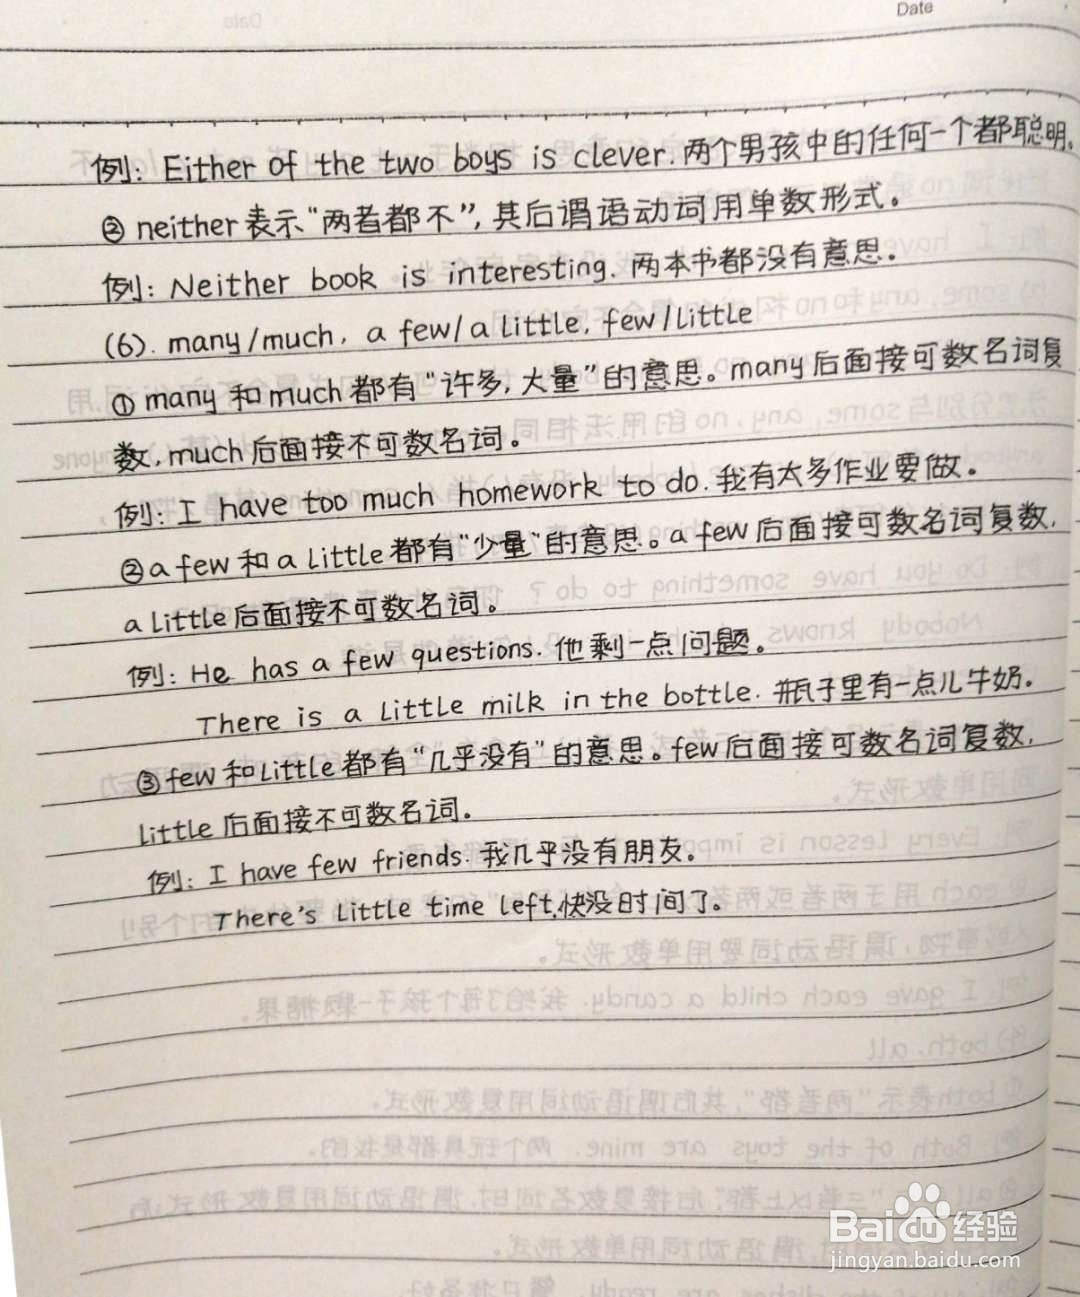 Date
例: Either of the two boys is clever. 两个男孩中的任何一个都聪明。
② neither 表示“两者都不”, 其后谓语动词用单数形式。
例: Neither book is interesting. 两本书都没有意思。
(6). many/much, a few/a little, few/little
① many 和 much 都有“许多, 大量”的意思。many后面接可数名词复
数, much 后面接不可数名词。
例: I have too much homework to do. 我有太多作业要做。
② a few 和 a little 都有“少量”的意思。a few 后面接可数名词复数,
a little 后面接不可数名词。
例: He has a few questions. 他剩一点问题。
There is a little milk in the bottle. 瓶子里有一点儿牛奶。
③ few 和 little 都有“几乎没有”的意思。few 后面接可数名词复数,
little 后面接不可数名词。
例: I have few friends. 我几乎没有朋友。
There's little time left. 快没时间了。
Baidu 经验
jingyan.baidu.com